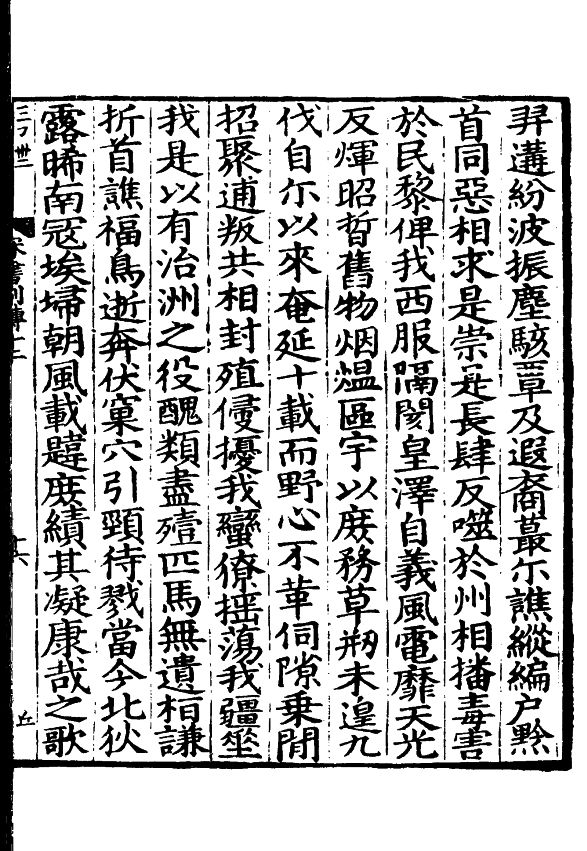 羿遘紛波振塵駭覃及遐裔蕞尓譙縱編户黔
首同惡相求是崇是長肆反噬於州相播毒害
於民黎俾我西服隔閡皇澤自義風電靡天光
反煇昭晢舊物烟熅區宇以庻務草剏未遑九
伐自尓以來奄延十載而野心不革伺隙乗閒
招聚逋叛共相封殖侵擾我蠻獠揺蕩我疆垂
我是以有治洲之役醜類盡殪匹馬無遺桓謙
折首譙福鳥逝奔伏窠穴引頸待戮當今北狄
露晞南寇埃埽朝風載韙庻績其凝康哉之歌
宋書列傳十二
十六
丘